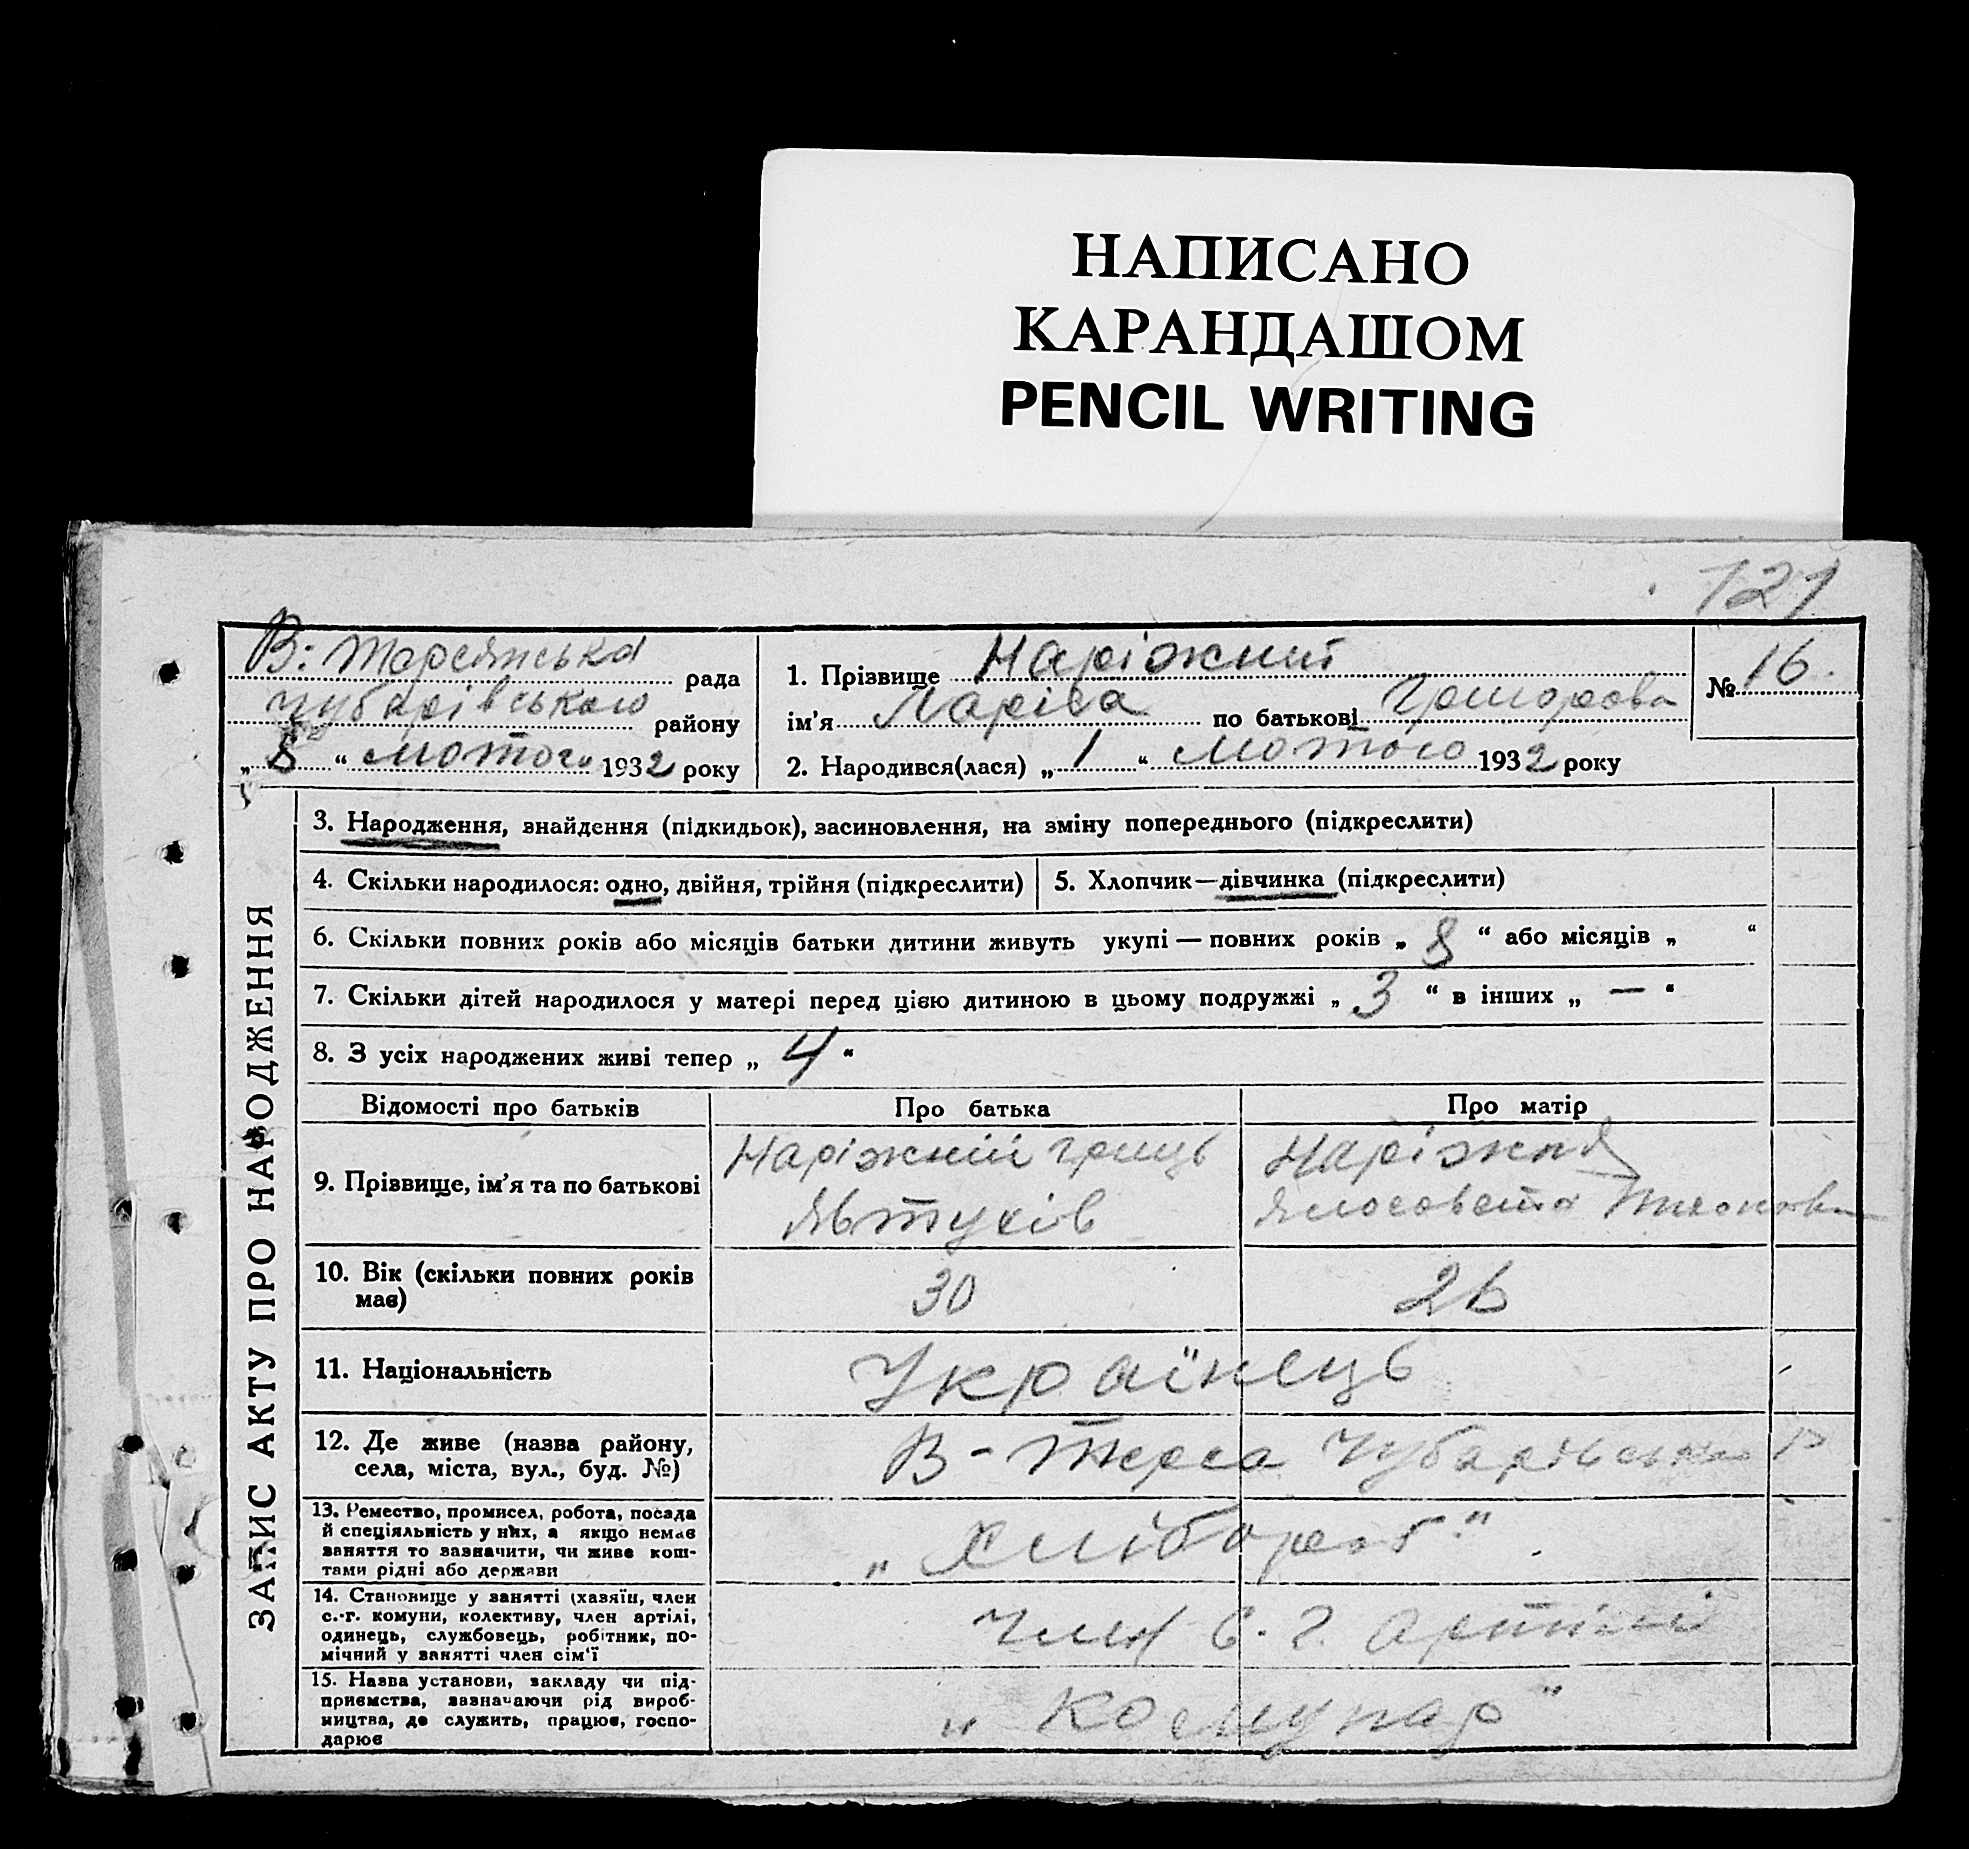 НАПИСАНО
КАРАНДАШОМ
PENCIL WRITING
121
В: Терсянська рада
Чубарівського району
„ 8 “ лютого 1932 року
1. Прізвище Наріжний
ім’я Лоріса по батькові Григорова
№ 16.
2. Народився(лася) „ 1 “ лютого 1932 року
ЗАПИС АКТУ ПРО НАРОДЖЕННЯ
3. Народження, знайдення (підкидьок), засиновлення, на зміну попереднього (підкреслити)
4. Скільки народилося: одно, двійня, трійня (підкреслити)
5. Хлопчик—дівчинка (підкреслити)
6. Скільки повних років або місяців батьки дитини живуть укупі — повних років „ 8 “ або місяців „ “
7. Скільки дітей народилося у матері перед цією дитиною в цьому подружжі „ 3 “ в інших „ — “
8. З усіх народжених живі тепер „ 4 “
Відомості про батьків
Про батька
Про матір
9. Прізвище, ім’я та по батькові
Наріжний Гриць
Явтухів
Наріжная
10. Вік (скільки повних років
має)
30
26
11. Національність
Українець
12. Де живе (назва району,
села, міста, вул., буд. №)
В-Терса Чубарівська Р
13. Ремество, промисел, робота, посада
й спеціяльність у них, а якщо немає
заняття то зазначити, чи живе кош-
тами рідні або держави
„ Хлібороб “.
14. Становище у занятті (хазяїн, член
с.-г. комуни, колективу, член артілі,
одинець, службовець, робітник, по-
мічний у занятті член сім’ї
Член С. Г. артілі
15. Назва установи, закладу чи під-
приємства, зазначаючи рід вироб-
ництва, де служить, працює, госпо-
дарює
„ Комунар “